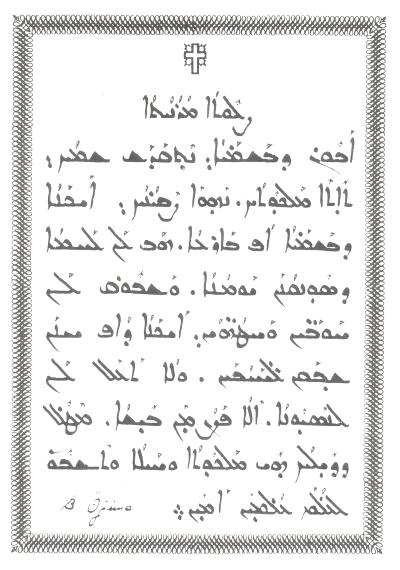 ܨܠܘܬܐ ܡܪܢܝܬܐ
ܐܒܘܢ ܕܒܫܡܝܐ. ܢܬܩܕܫ ܫܡܟ܆
ܬܐܬܐ ܡܠܟܘܬܟ. ܢܗܘܐ ܨܒܝܢܟ܆ ܐܝܟܢܐ
ܕܒܫܡܝܐ ܐܦ ܒܐܪܥܐ. ܗܒ ܠܢ ܠܚܡܐ
ܕܣܘܢܩܢܢ ܝܘܡܢܐ. ܘܫܒܘܩ ܠܢ
ܚܘܒ̈ܝܢ ܘܚܛܗ̈ܝܢ. ܐܝܟܢܐ ܕܐܦ ܚܢܢ
ܫܒܩܢ ܠܚܝܒܝܢ. ܘܠܐ ܬܥܠ ܠܢ
ܠܢܣܝܘܢܐ. ܐܠܐ ܦܨܢ ܡܢ ܒܝܫܐ. ܡܛܠ
ܕܕܝܠܟ ܗܝ ܡܠܟܘܬܐ ܘܚܝܠܐ ܘܬܫܒܘܚܬܐ
ܠܥܠܡ ܥܠܡܝܢ ܐܡܝܢ܀